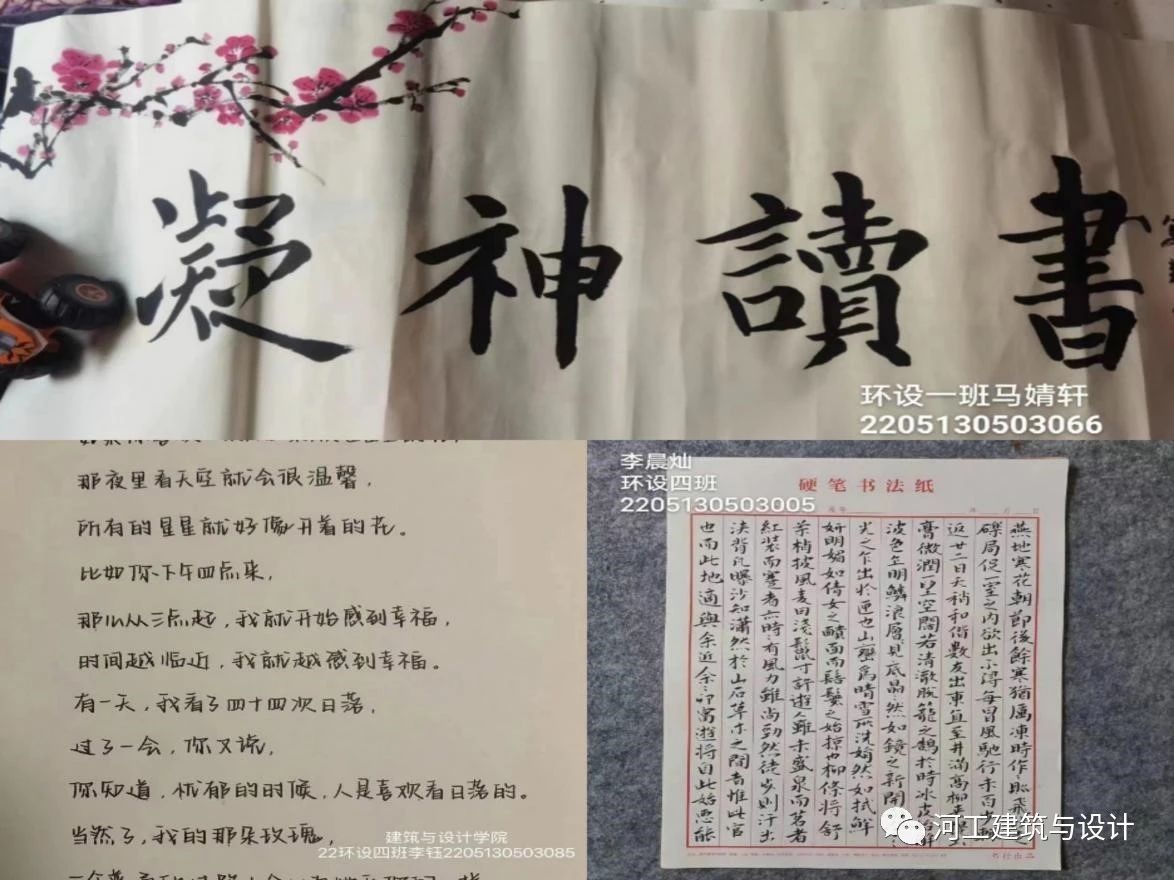 凝神讀書
环设一班马婧轩
2205130503066
那夜里看天空就会很温馨，
所有的星星就好像开着的花。
比如你下午四点来，
那么从三点起，我就开始感到幸福，
时间越临近，我就越感到幸福。
有一天，我看了四十四次日落，
过了一会，你又说，
你知道，忧郁的时候，人是喜欢看日落的。
当然了，我的那朵玫瑰，
建筑与设计学院
22环设四班李钰2205130503085
李晨灿
环设四班
2205130503005
硬笔书法纸
燕地寒花朝節後餘寒猶厲凍時作
礫局促一室之內欲出不得每冒風馳行未百步
返廿二日天稍和偕數友出東直至井滿高柳夾
膏微潤一望空闊若清澈脫籠之鵠於時冰皮始解
波色乍明鱗浪層見底晶然如鏡之新開
光之乍出於匣也山巒爲晴雪所洗娟然如拭鮮
妍明媚如倩女之靧面而髻鬟之始掠也柳條將舒
柔梢披風麦田淺鬣寸許遊人雖未盛泉而茗者
紅装而蹇者亦時有風力雖尚勁然徒步則汗出
浹背凡曝沙知瀟然於山石草木之間者惟此官
也而此地適與余近余遊將自此始惡能
河工建筑与设计